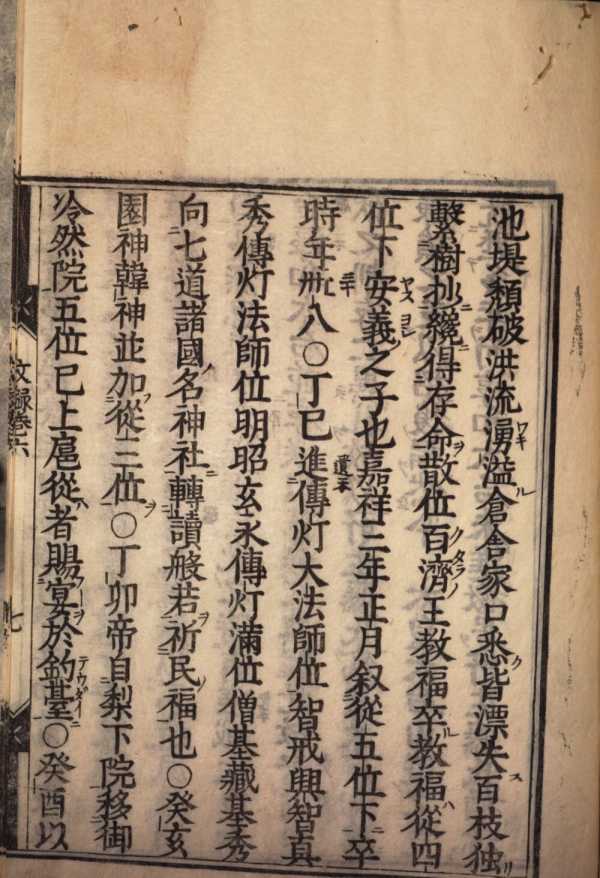 池堤頽破洪流湧溢倉舎家口悉皆漂失百枝独
繋樹抄纔得存命散位百濟王教福卒教福從四
位下安義之子也嘉祥三年正月叙從五位下卒
時年卌八〇丁巳進傳灯大法師位智戒興智真
秀傳灯法師位明昭玄永傳灯滿位僧基藏基秀
向七道諸國名神社轉讀般若祈民福也〇癸亥
園神韓神並加從三位〇丁卯帝自梨下院移御
冷然院五位已上扈從者賜宴於釣䑓〇癸酉以
文録巻六
七